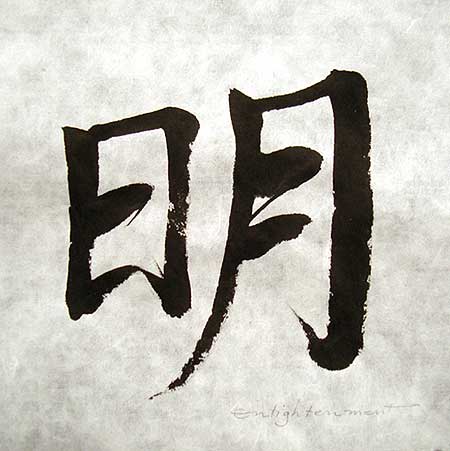 明
Enlightenment